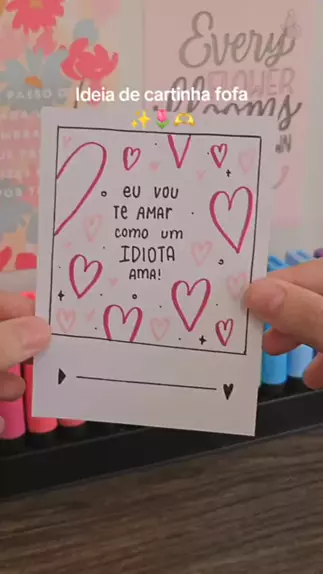 Ideia de cartinha fofa
✨🌷🫶
Every
FLOWER
blooms
IN
PASSO D
EU VOU
TE AMAR
COMO UM
IDIOTA
AMA!